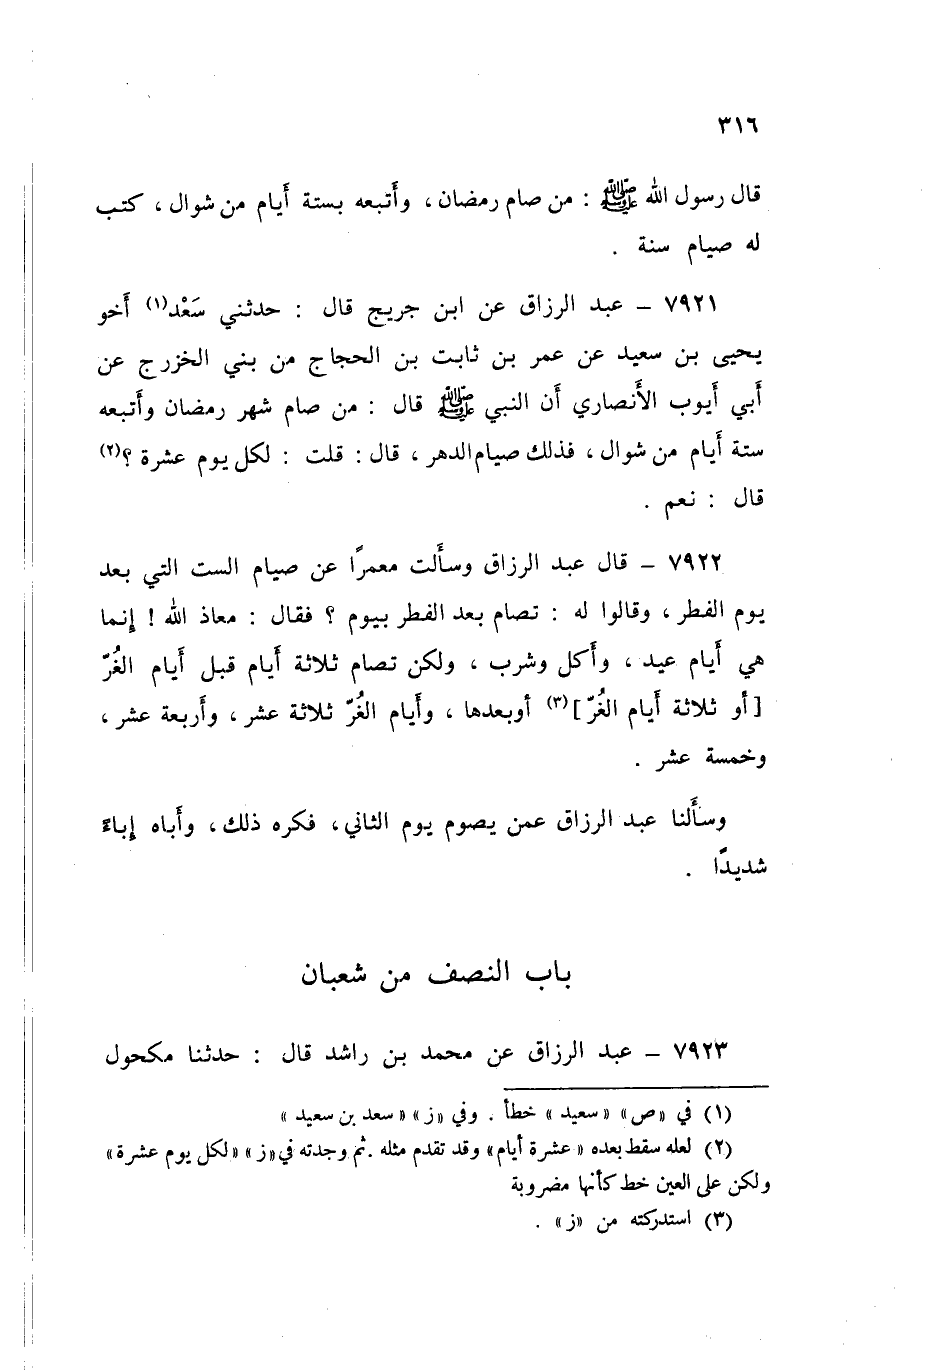 ٣١٦
قال رسول الله ﷺ : من صام رمضان ، وأَتبعه بستة أَيام من شوال ، كتب
له صيام سنة .
٧٩٢١ – عبد الرزاق عن ابن جريج قال : حدثني سَعْد(١) أَخو
يحيى بن سعيد عن عمر بن ثابت بن الحجاج من بني الخزرج عن
أَبي أَيوب الأَنصاري أَن النبي ﷺ قال : من صام شهر رمضان وأَتبعه
ستة أَيام من شوال ، فذلك صيام الدهر ، قال : قلت : لكل يوم عشرة ؟(٢)
قال : نعم .
٧٩٢٢ – قال عبد الرزاق وسأَلت معمرًا عن صيام الست التي بعد
يوم الفطر ، وقالوا له : تصام بعد الفطر بيوم ؟ فقال : معاذ الله ! إِنما
هي أَيام عيد ، وأَكل وشرب ، ولكن تصام ثلاثة أَيام قبل أَيام الغُرّ
[أو ثلاثة أَيام الغُرّ](٣) أوبعدها ، وأَيام الغُرّ ثلاثة عشر ، وأَربعة عشر ،
وخمسة عشر .
وسأَلنا عبد الرزاق عمن يصوم يوم الثاني ، فكره ذلك ، وأَباه إِباءً
شديدًا .
باب النصف من شعبان
٧٩٢٣ – عبد الرزاق عن محمد بن راشد قال : حدثنا مكحول
(١) في «ص» «سعيد» خطأ . وفي «ز» «سعد بن سعيد»
(٢) لعله سقط بعده «عشرة أيام» وقد تقدم مثله . ثم وجدته في «ز» «لكل يوم عشرة»
ولكن على العين خط كأنها مضروبة
(٣) استدركته من «ز» .